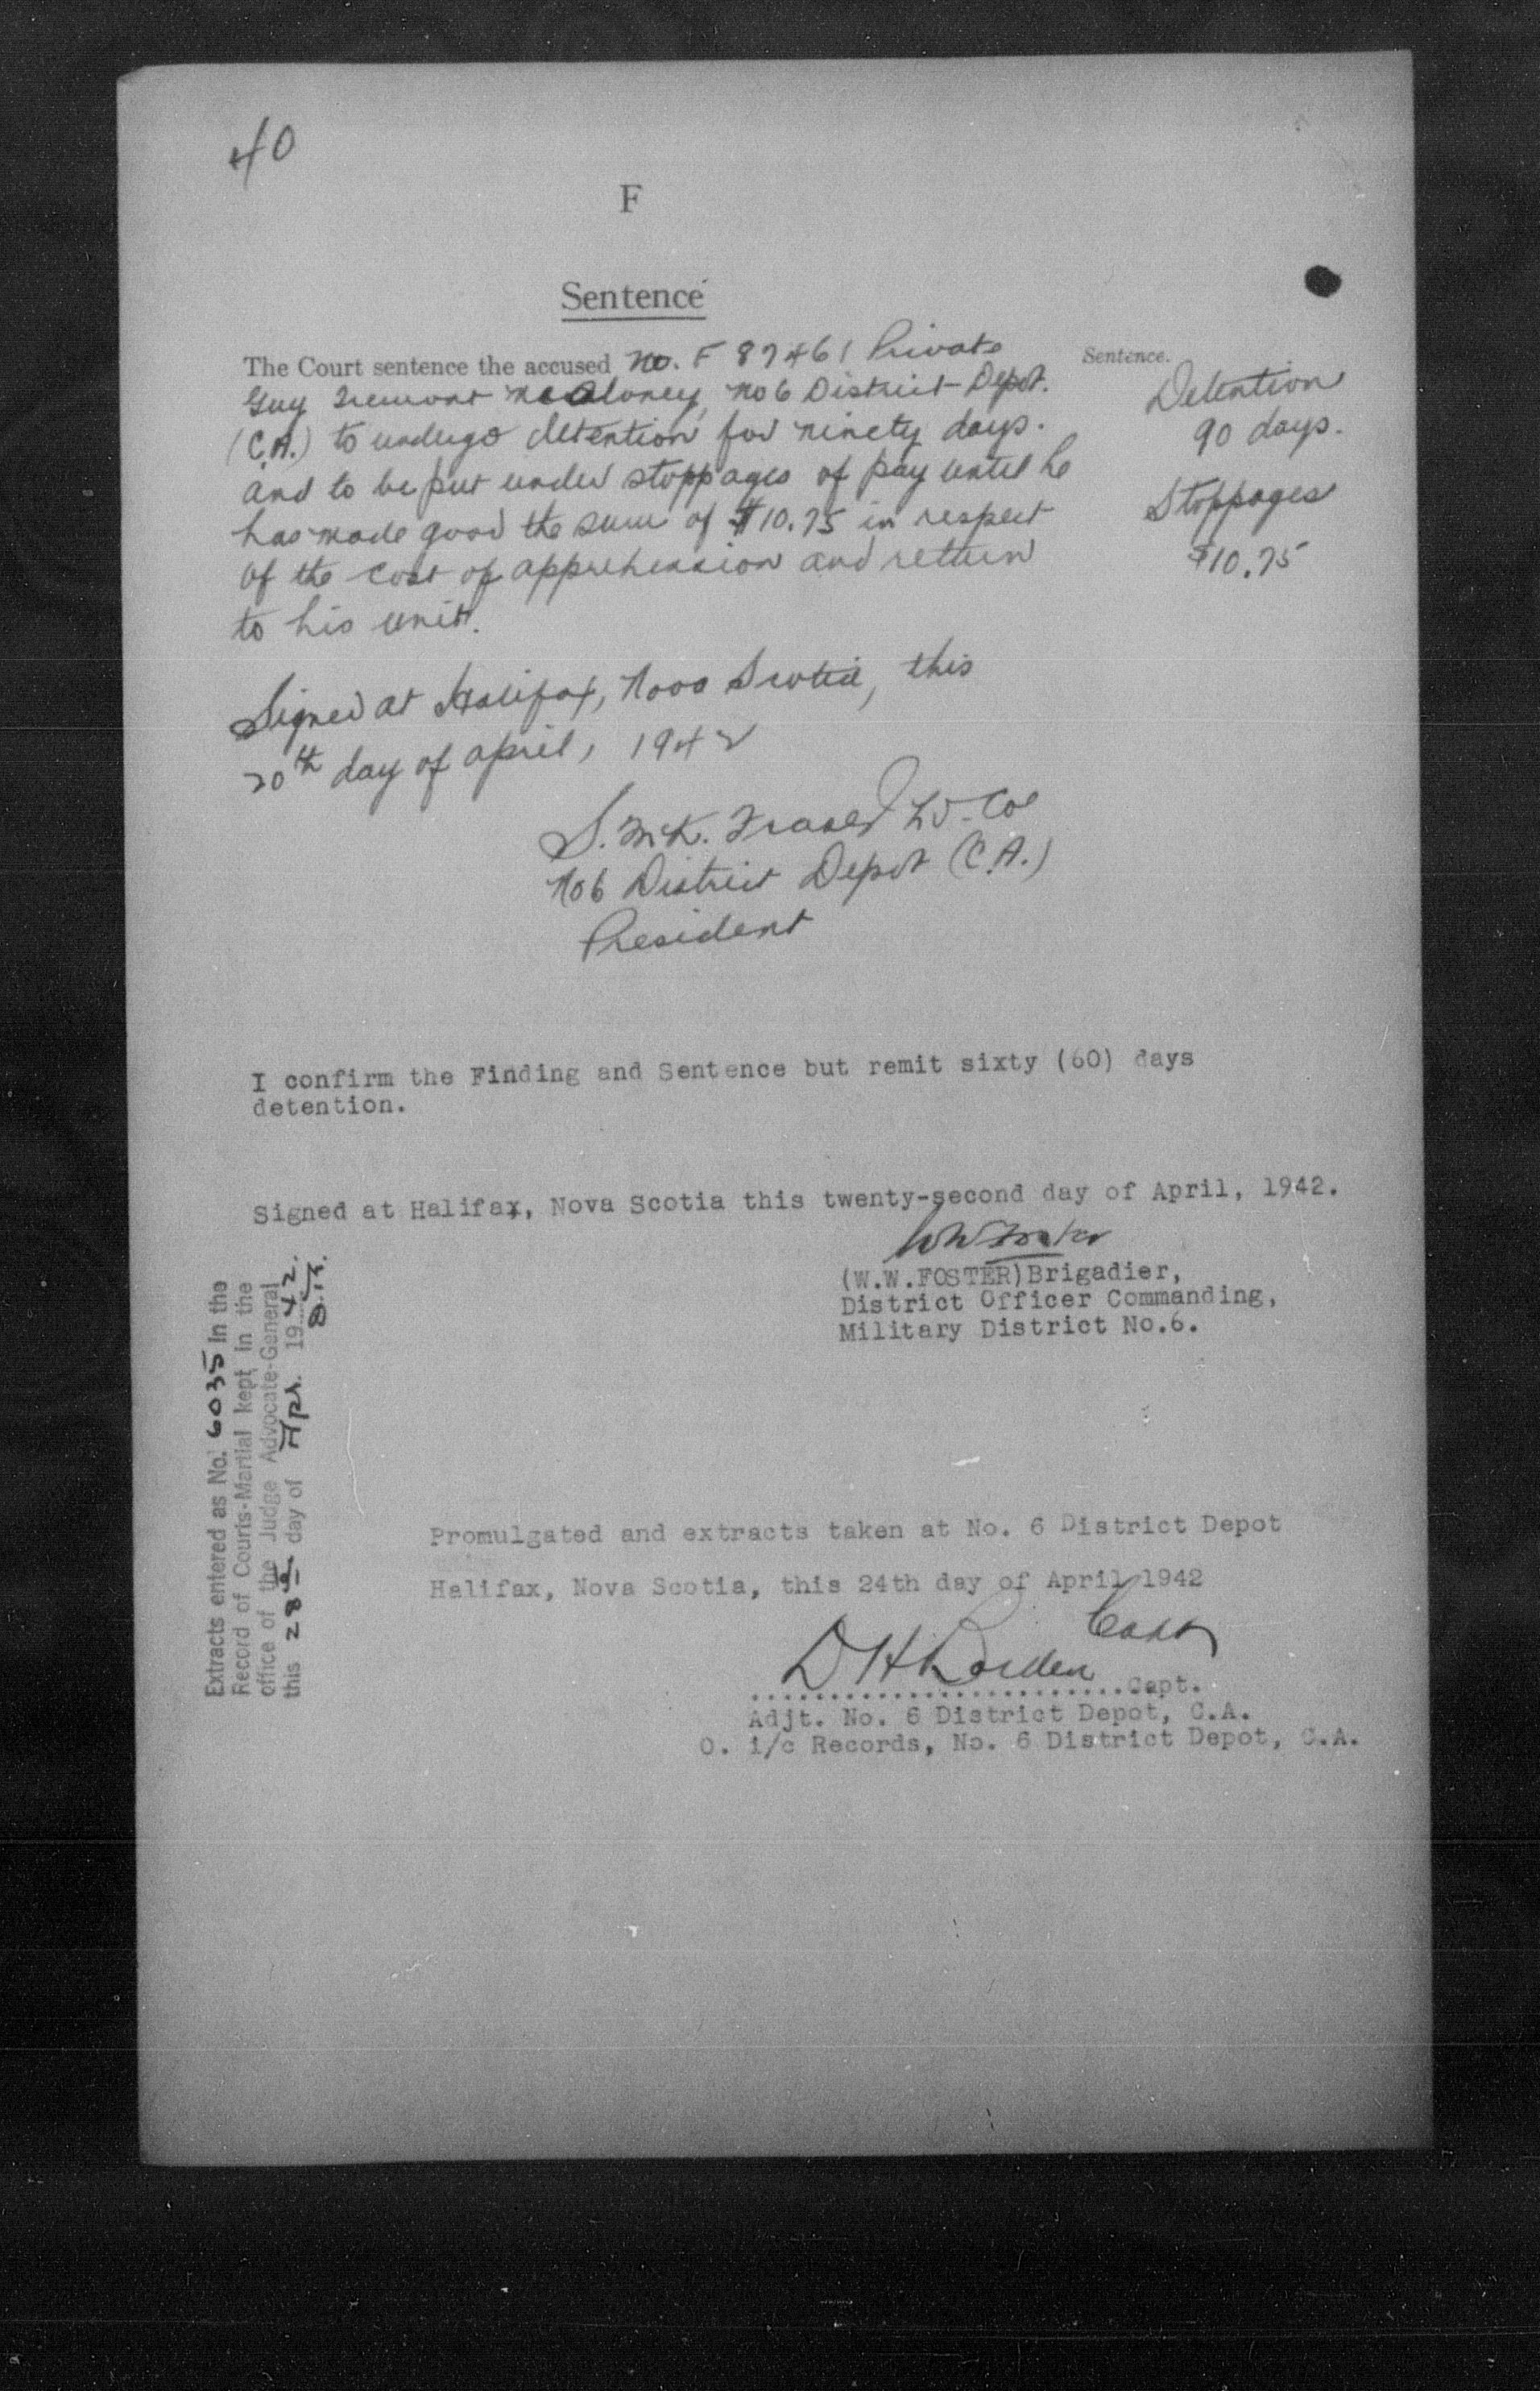 40
F
Sentence
The Court sentence the accused No. F 87461 Private
Guy Fremont McAloney, No 6 District Depot.
(C.A.) to undergo detention for ninety days.
and to be put under stoppages of pay until he
has made good the sum of $10.75 in respect
of the cost of apprehension and return
to his unit.
Sentence.
Detention
90 days.
Stoppages
$10.75
Signed at Halifax, Nova Scotia, this
20th day of April, 1942
S. McK. Fraser Lt-Col
No 6 District Depot (C.A.)
President
I confirm the Finding and Sentence but remit sixty (60) days
detention.
Signed at Halifax, Nova Scotia this twenty-second day of April, 1942.
WW Foster
(W.W.FOSTER)Brigadier,
District Officer Commanding,
Military District No.6.
Extracts entered as No. 6035 in the
Record of Courts-Martial kept in the
office of the Judge Advocate-General
this 28th day of Apr. 1942.
Promulgated and extracts taken at No. 6 District Depot
Halifax, Nova Scotia, this 24th day of April 1942
D H Borden Capt
........................Capt.
Adjt. No. 6 District Depot, C.A.
O. i/c Records, No. 6 District Depot, C.A.